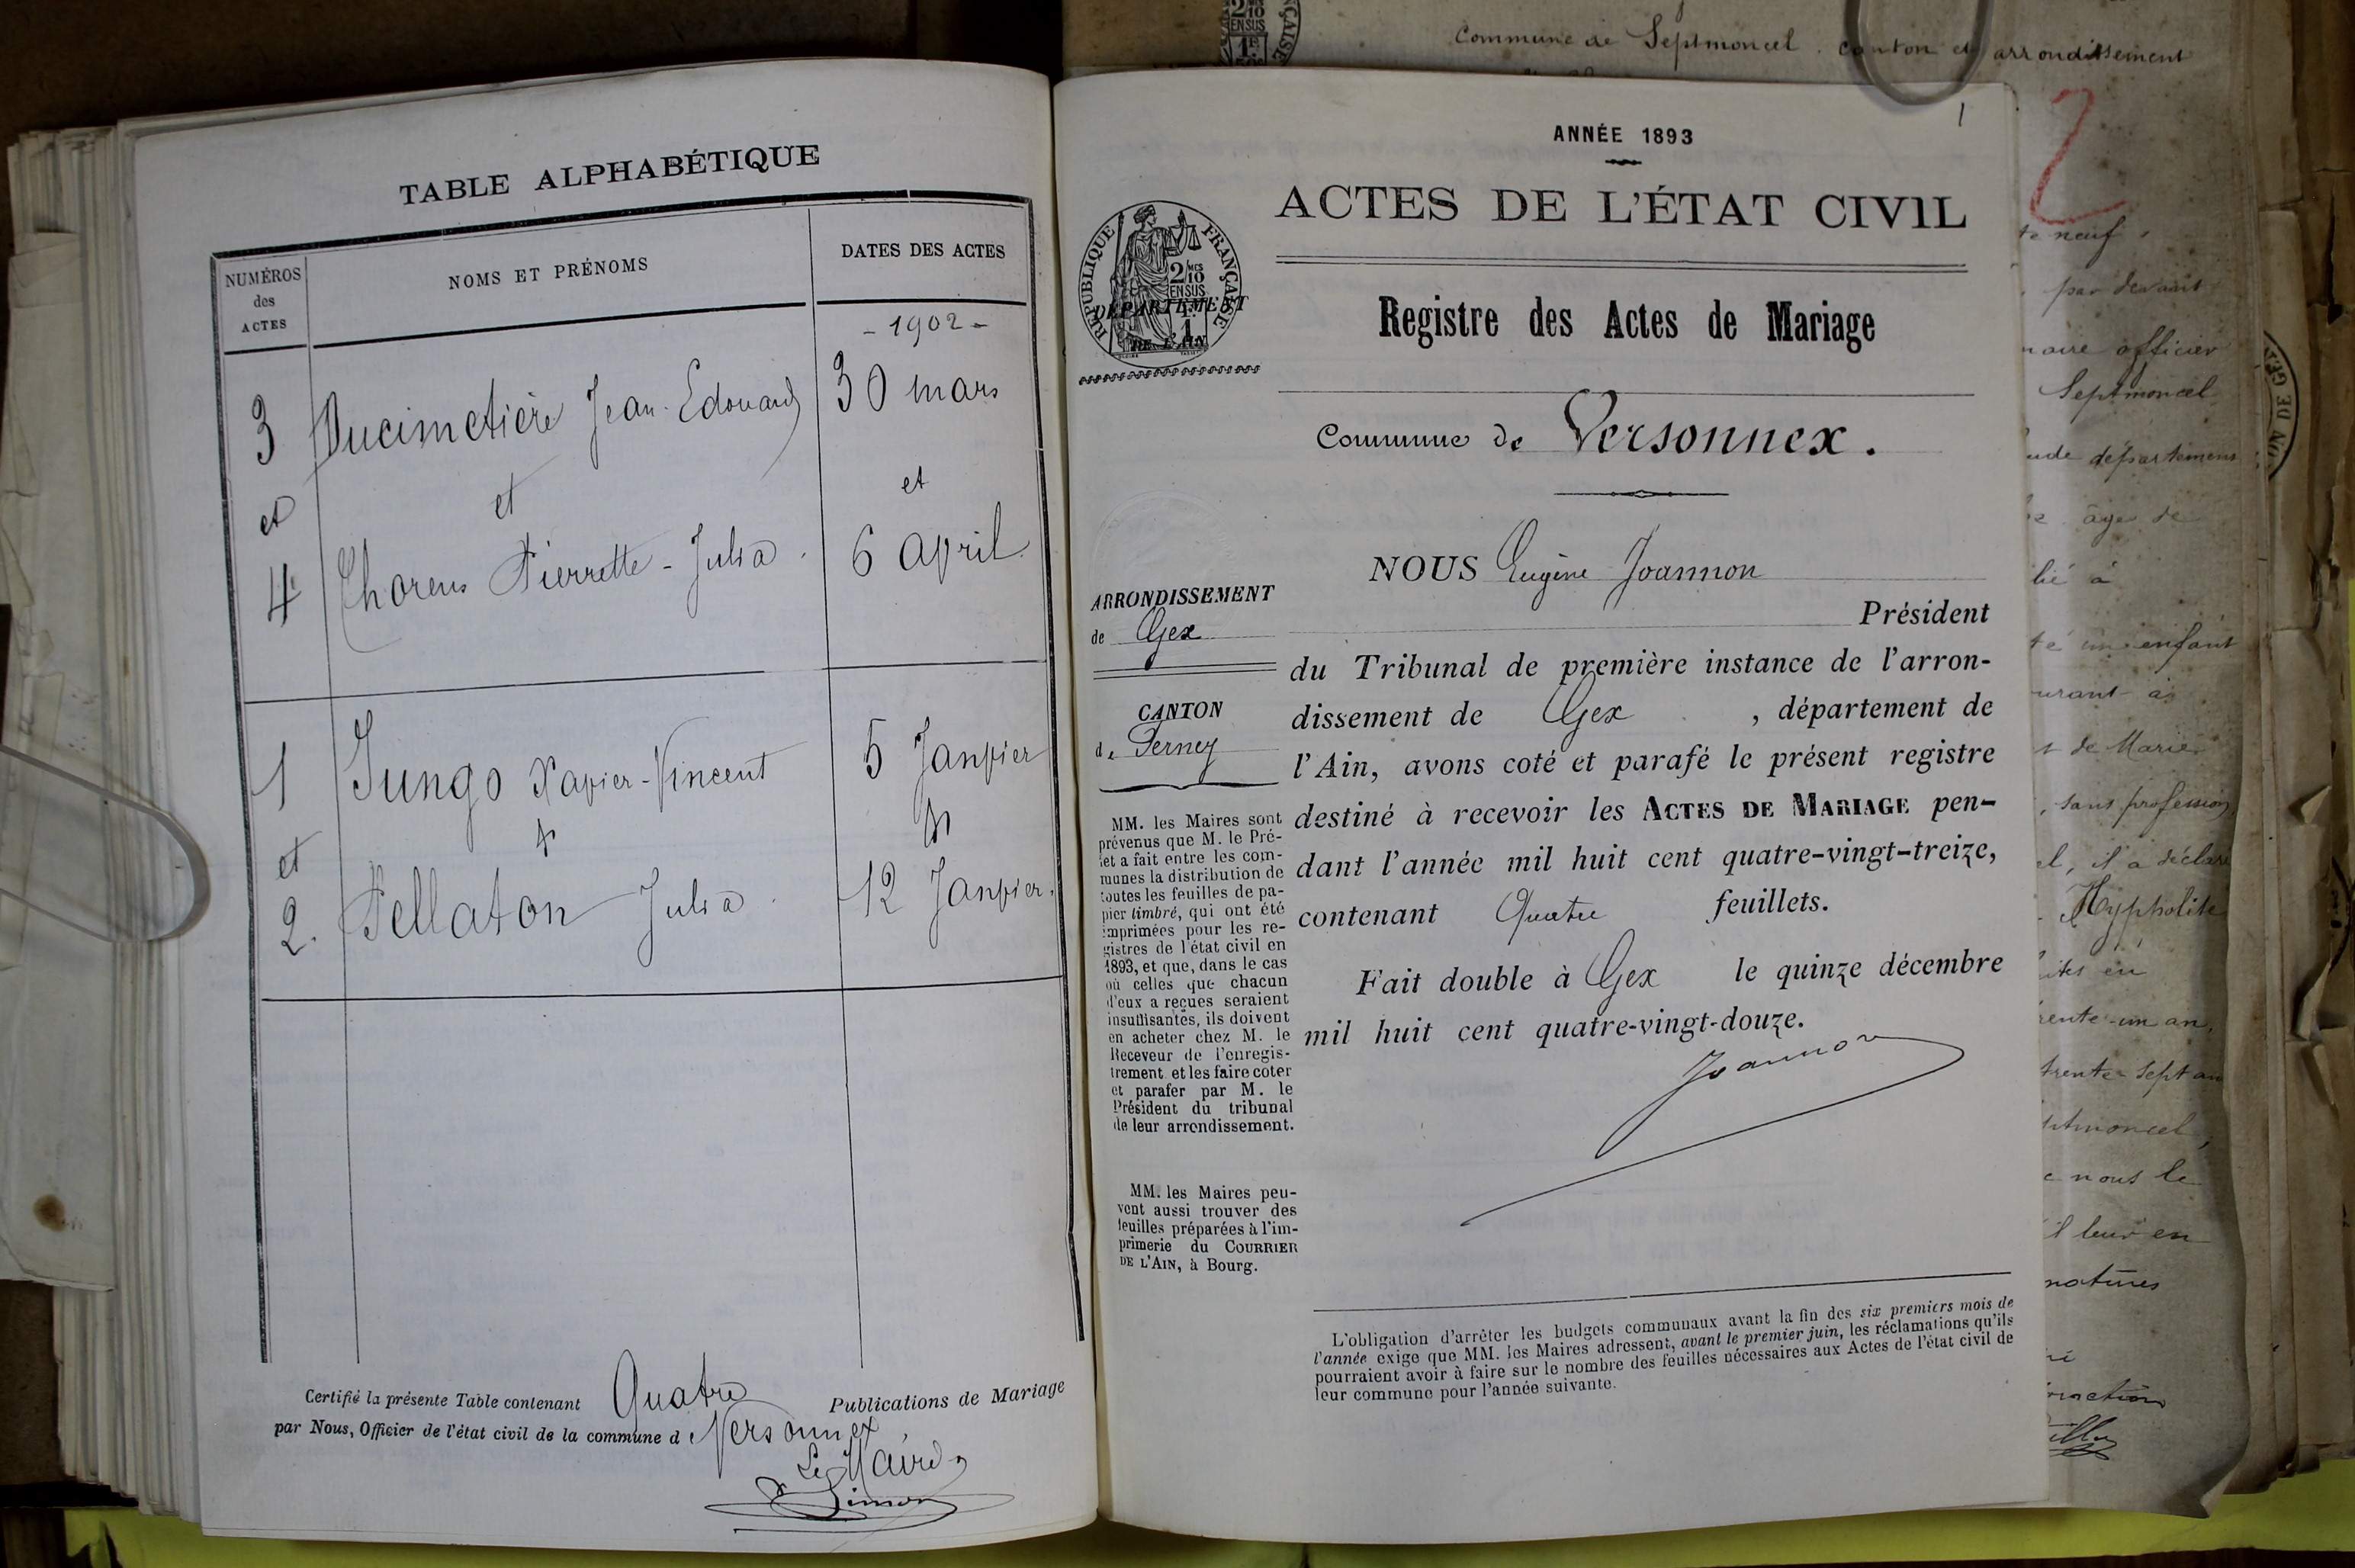 TABLE ALPHABÉTIQUE
NUMÉROS
des
ACTES
NOMS ET PRÉNOMS
DATES DES ACTES
- 1902 -
3 Ducimetière Jean-Edouard 30 mars
et et et
4 Chorens Pierrette-Julia. 6 april
1 Jungo Xavier-Vincent 5 Janvier
et
2. Pellaton Julia. 12 Janvier.
Certifié la présente Table contenant Quatre Publications de Mariage
par Nous, Officier de l'état civil de la commune d Versonnex
Le Maire
Simon
1
ANNÉE 1893
ACTES DE L'ÉTAT CIVIL
RÉPUBLIQUE FRANÇAISE
2/10
EN SUS
DÉPARTEMENT
DE L'AIN
Registre des Actes de Mariage
Commune de Versonnex.
ARRONDISSEMENT
de Gex
CANTON
de Ferney
MM. les Maires sont
prévenus que M. le Pré-
fet a fait entre les com-
munes la distribution de
toutes les feuilles de pa-
pier timbré, qui ont été
imprimées pour les re-
gistres de l'état civil en
1893, et que, dans le cas
où celles que chacun
d'eux a reçues seraient
insuffisantes, ils doivent
en acheter chez M. le
Receveur de l'enregis-
trement et les faire coter
et parafer par M. le
Président du tribunal
de leur arrondissement.
MM. les Maires peu-
vent aussi trouver des
feuilles préparées à l'im-
primerie du COURRIER
DE L'AIN, à Bourg.
NOUS Eugène Joannon
Président
du Tribunal de première instance de l'arron-
dissement de Gex, département de
l'Ain, avons coté et parafé le présent registre
destiné à recevoir les ACTES DE MARIAGE pen-
dant l'année mil huit cent quatre-vingt-treize,
contenant Quatre feuillets.
Fait double à Gex le quinze décembre
mil huit cent quatre-vingt-douze.
Joannon
L'obligation d'arrêter les budgets communaux avant la fin des six premiers mois de
l'année exige que MM. les Maires adressent, avant le premier juin, les réclamations qu'ils
pourraient avoir à faire sur le nombre des feuilles nécessaires aux Actes de l'état civil de
leur commune pour l'année suivante.
Commune de Septmoncel. canton et arrondissement
2
neuf,
par devant
officier
Septmoncel
département
âgé de
à
un enfant
de Marie
, sans profession
, il a déclaré
Hyppolite
en
trente-un an,
trente-sept an
nous le
leur en